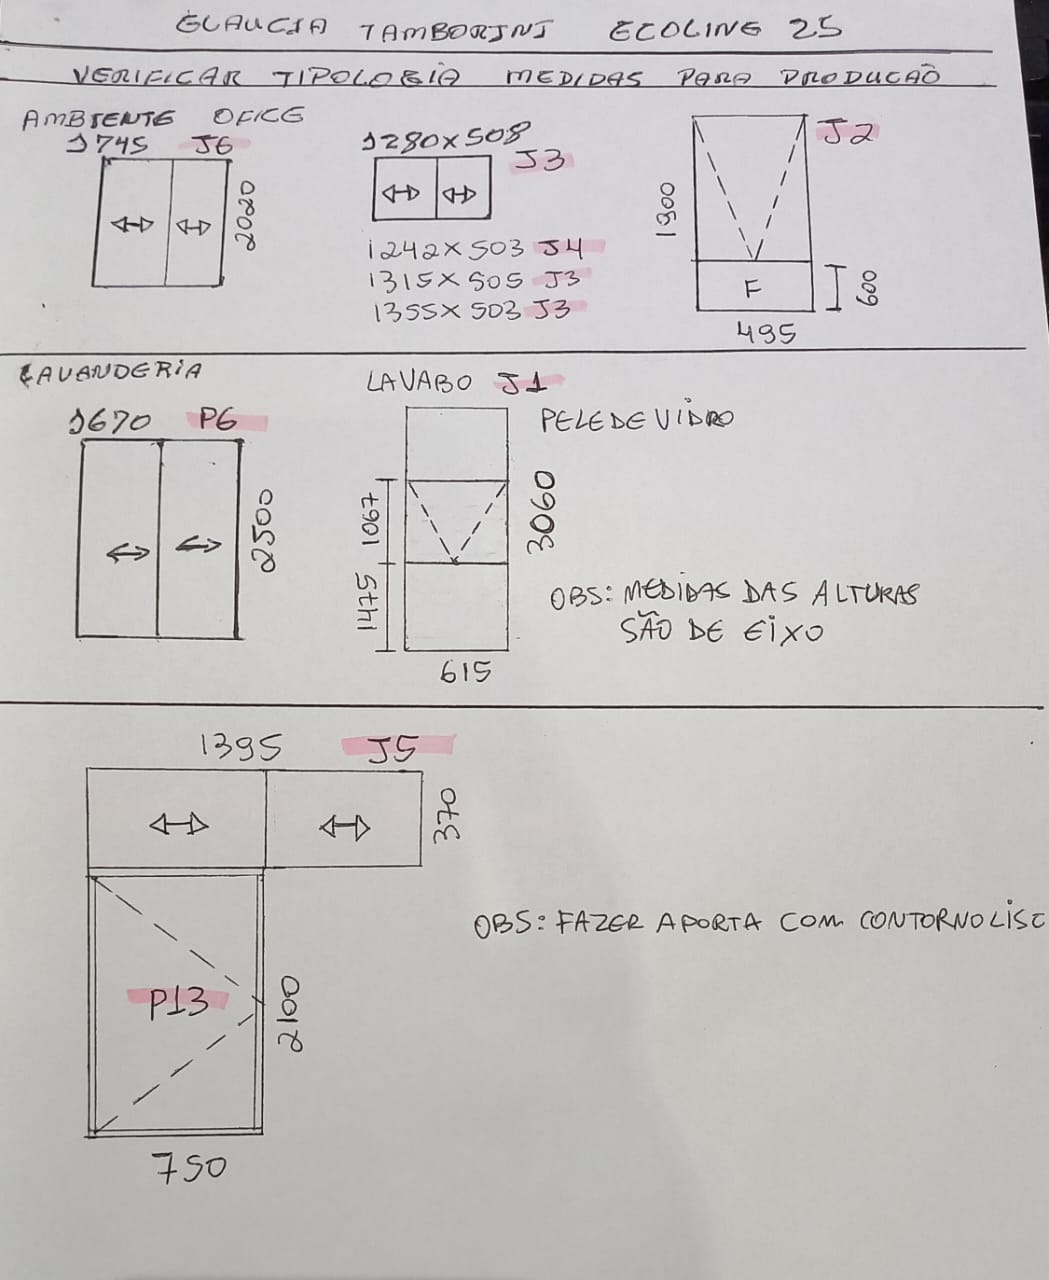 GLAUCIA TAMBORINI ECOLINE 25
VERIFICAR TIPOLOGIA MEDIDAS PARA PRODUCAÕ
AMBIENTE OFICE
1745 J6
2020
1280X508
J3
1242X503 J4
1315X505 J3
1355X503 J3
J2
1300
F
600
495
LAVANDERIA
1670 P6
2500
LAVABO J1
PELE DE VIDRO
1067
3060
1475
615
OBS: MEDIDAS DAS ALTURAS
SÃO DE EIXO
1395 J5
370
OBS: FAZER A PORTA COM CONTORNO LISO
P13
2100
750